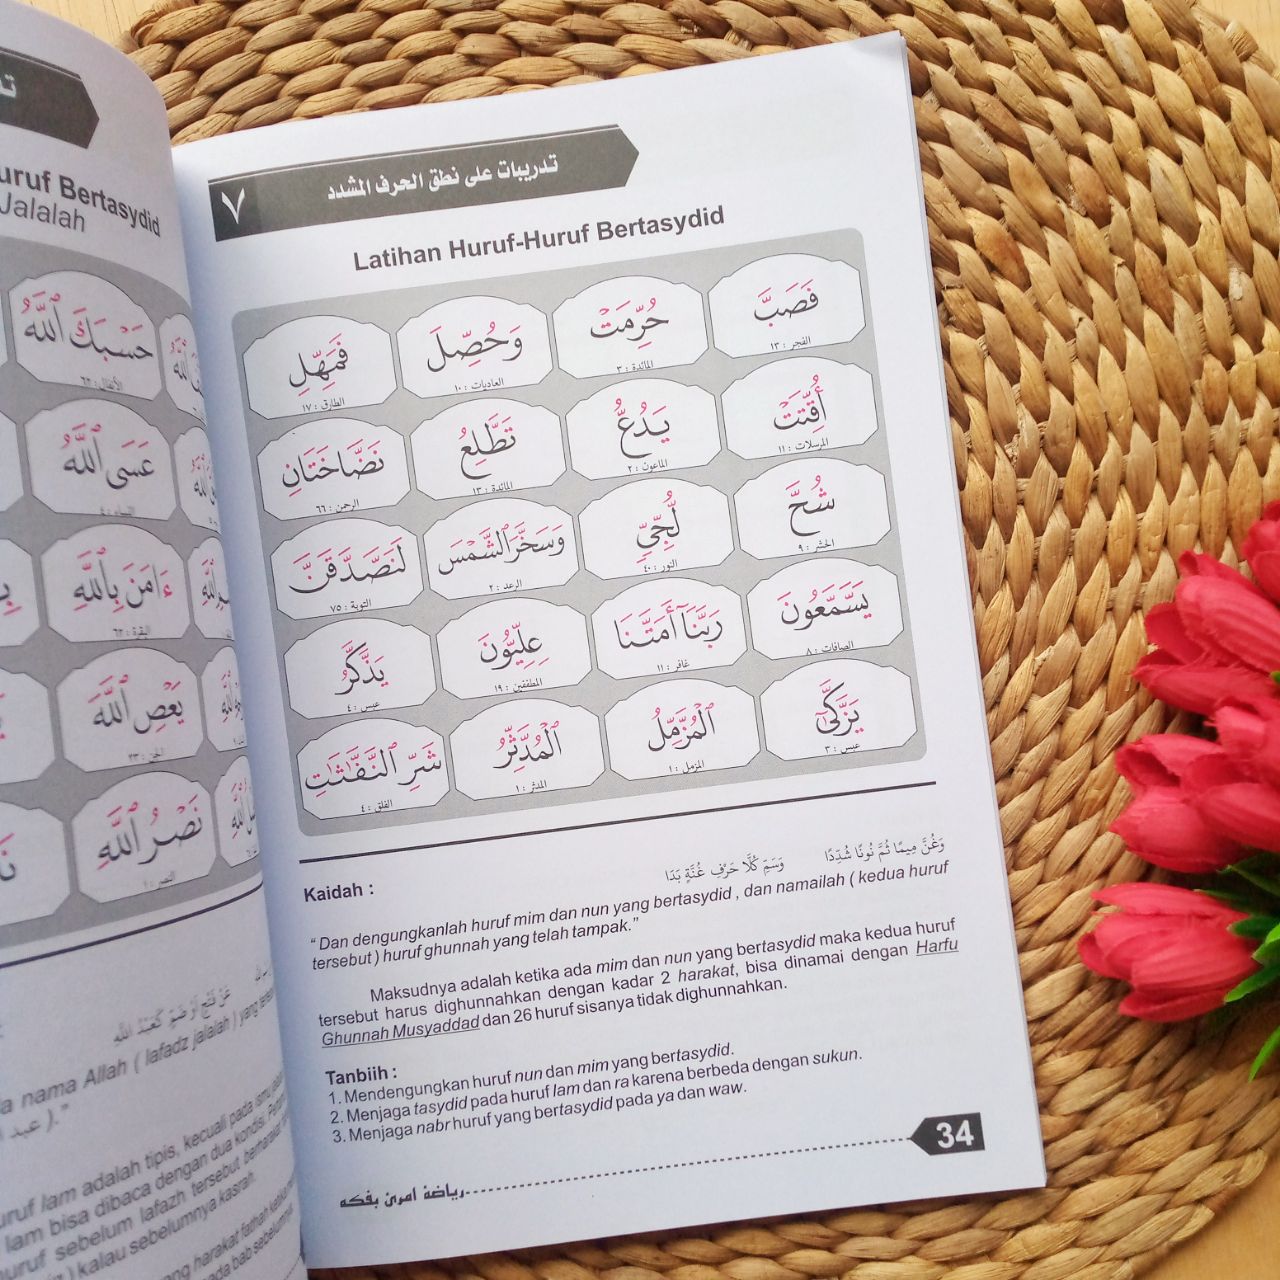 uruf Bertasydid
Jalalah
حَسْبَكَ ٱللَّهُ
الأنفال : ٦٢
عَسَى ٱللَّهُ
ءَامَنَ بِٱللَّهِ
البقرة : ٦٢
يَعْصِ ٱللَّهَ
الجن : ٢٣
نَصْرُ ٱللَّهِ
النصر : ١
a nama Allah ( lafadz jalalah ) yang
uruf lam adalah tipis, kecuali pada
lam bisa dibaca dengan dua kondisi.
uruf sebelum lafazh tersebut
) kalau sebelumnya kasrah.
٧
تدريبات على نطق الحرف المشدد
Latihan Huruf-Huruf Bertasydid
فَصَبَّ حُرِّمَتْ وَحُصِّلَ فَمَهِّلِ
الفجر : ١٣ المائدة : ٣ العاديات : ١٠ الطارق : ١٧
أُقِّتَتْ يَدُعُّ تَطَّلِعُ نَضَّاخَتَانِ
المرسلات : ١١ الماعون : ٢ المائدة : ١٣ الرحمن : ٦٦
شُحَّ لُّجِّيٍّ وَسَخَّرَ ٱلشَّمْسَ لَنَصَّدَّقَنَّ
الحشر : ٩ النور : ٤٠ الرعد : ٢ التوبة : ٧٥
يَسَّمَّعُونَ رَبَّنَآ أَمَتَّنَا عِلِيُّونَ يَذَّكَّرُ
الصافات : ٨ غافر : ١١ المطففين : ١٩ عبس : ٤
يَزَّكَّىٰٓ ٱلْمُزَّمِّلُ ٱلْمُدَّثِّرُ شَرِّ ٱلنَّفَّٰثَٰتِ
عبس : ٣ المزمل : ١ المدثر : ١ الفلق : ٤
وَغُنَّ مِيمًا ثُمَّ نُونًا شُدِّدَا وَسَمِّ كُلَّا حَرْفَ غُنَّةٍ بَدَا
Kaidah :
“ Dan dengungkanlah huruf mim dan nun yang bertasydid , dan namailah ( kedua huruf
tersebut ) huruf ghunnah yang telah tampak.”
Maksudnya adalah ketika ada mim dan nun yang bertasydid maka kedua huruf
tersebut harus dighunnahkan dengan kadar 2 harakat, bisa dinamai dengan Harfu
Ghunnah Musyaddad dan 26 huruf sisanya tidak dighunnahkan.
Tanbiih :
1. Mendengungkan huruf nun dan mim yang bertasydid.
2. Menjaga tasydid pada huruf lam dan ra karena berbeda dengan sukun.
3. Menjaga nabr huruf yang bertasydid pada ya dan waw.
34
رياضة امرئ بفكه